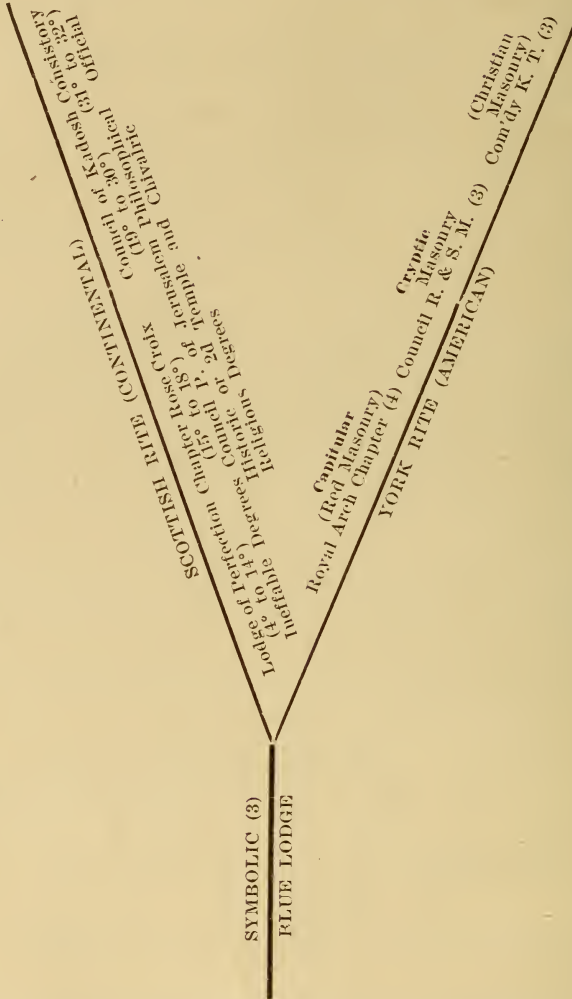 SYMBOLIC (3)
BLUE LODGE
SCOTTISH RITE (CONTINENTAL)
Lodge of Perfection
(4° to 14°)
Ineffable Degrees
Chapter Rose Croix
(15° to 18°)
Council P. of Jerusalem
Historic or 2d Temple and
Religious Degrees
Council of Kadosh
(19° to 30°)
Philosophical
and Chivalric
Consistory
(31° to 32°)
Official
Capitular
(Red Masonry)
Royal Arch Chapter (4)
Cryptic
Masonry
Council R. & S. M. (3)
(Christian
Masonry)
Com'dy K. T. (3)
YORK RITE (AMERICAN)